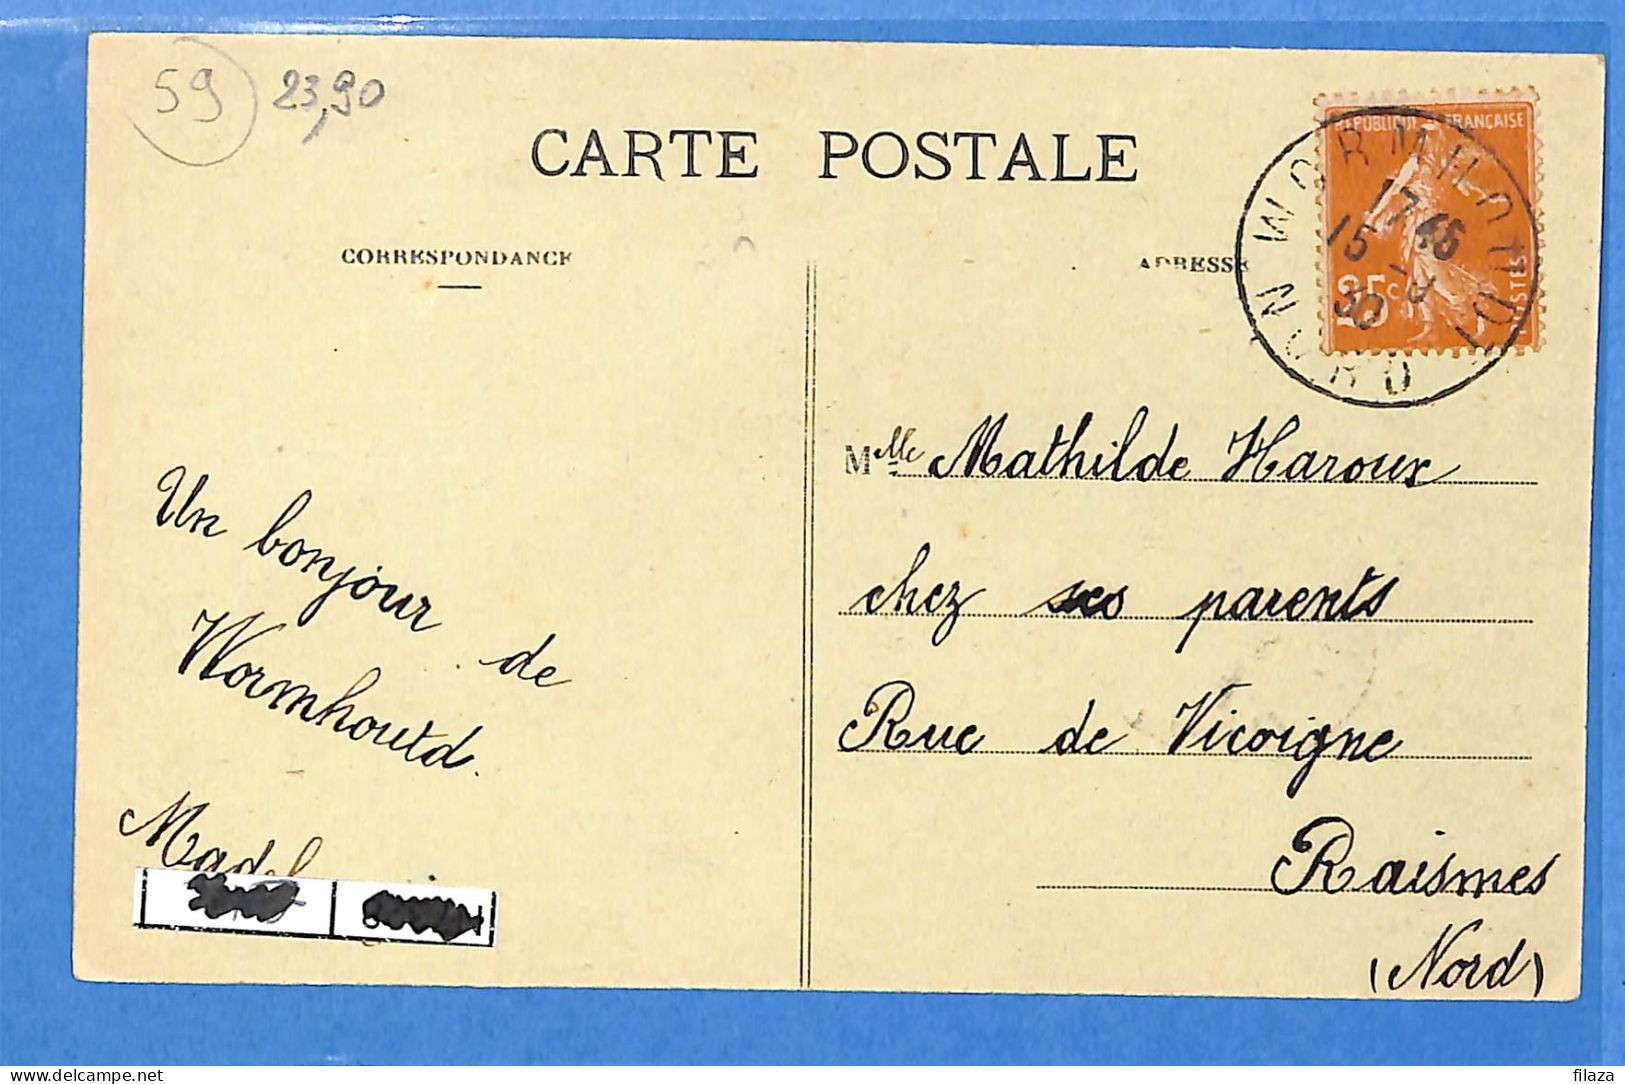 59
23,90
CARTE POSTALE
CORRESPONDANCE
ADRESSE
RÉPUBLIQUE FRANÇAISE
25c
POSTES
WORMHOUDT
17 46
15 - 9
30
NORD
Mlle Mathilde Haroux
chez ses parents
Rue de Vicoigne
Raismes
(Nord)
Un bonjour de
Wormhoutd.
delcampe.net
filaza